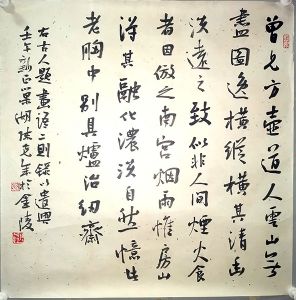 曾见方壶道人云山无
尽图逸横纵横其清幽
淡远之致似非人间烟火食
者因仿之南宫烟雨惟房山
得其融化浓淡自然一憶此
老胸中别具爐冶幼齋
右古人题画语二则録以遣興
壬午新正巢湖 於金陵